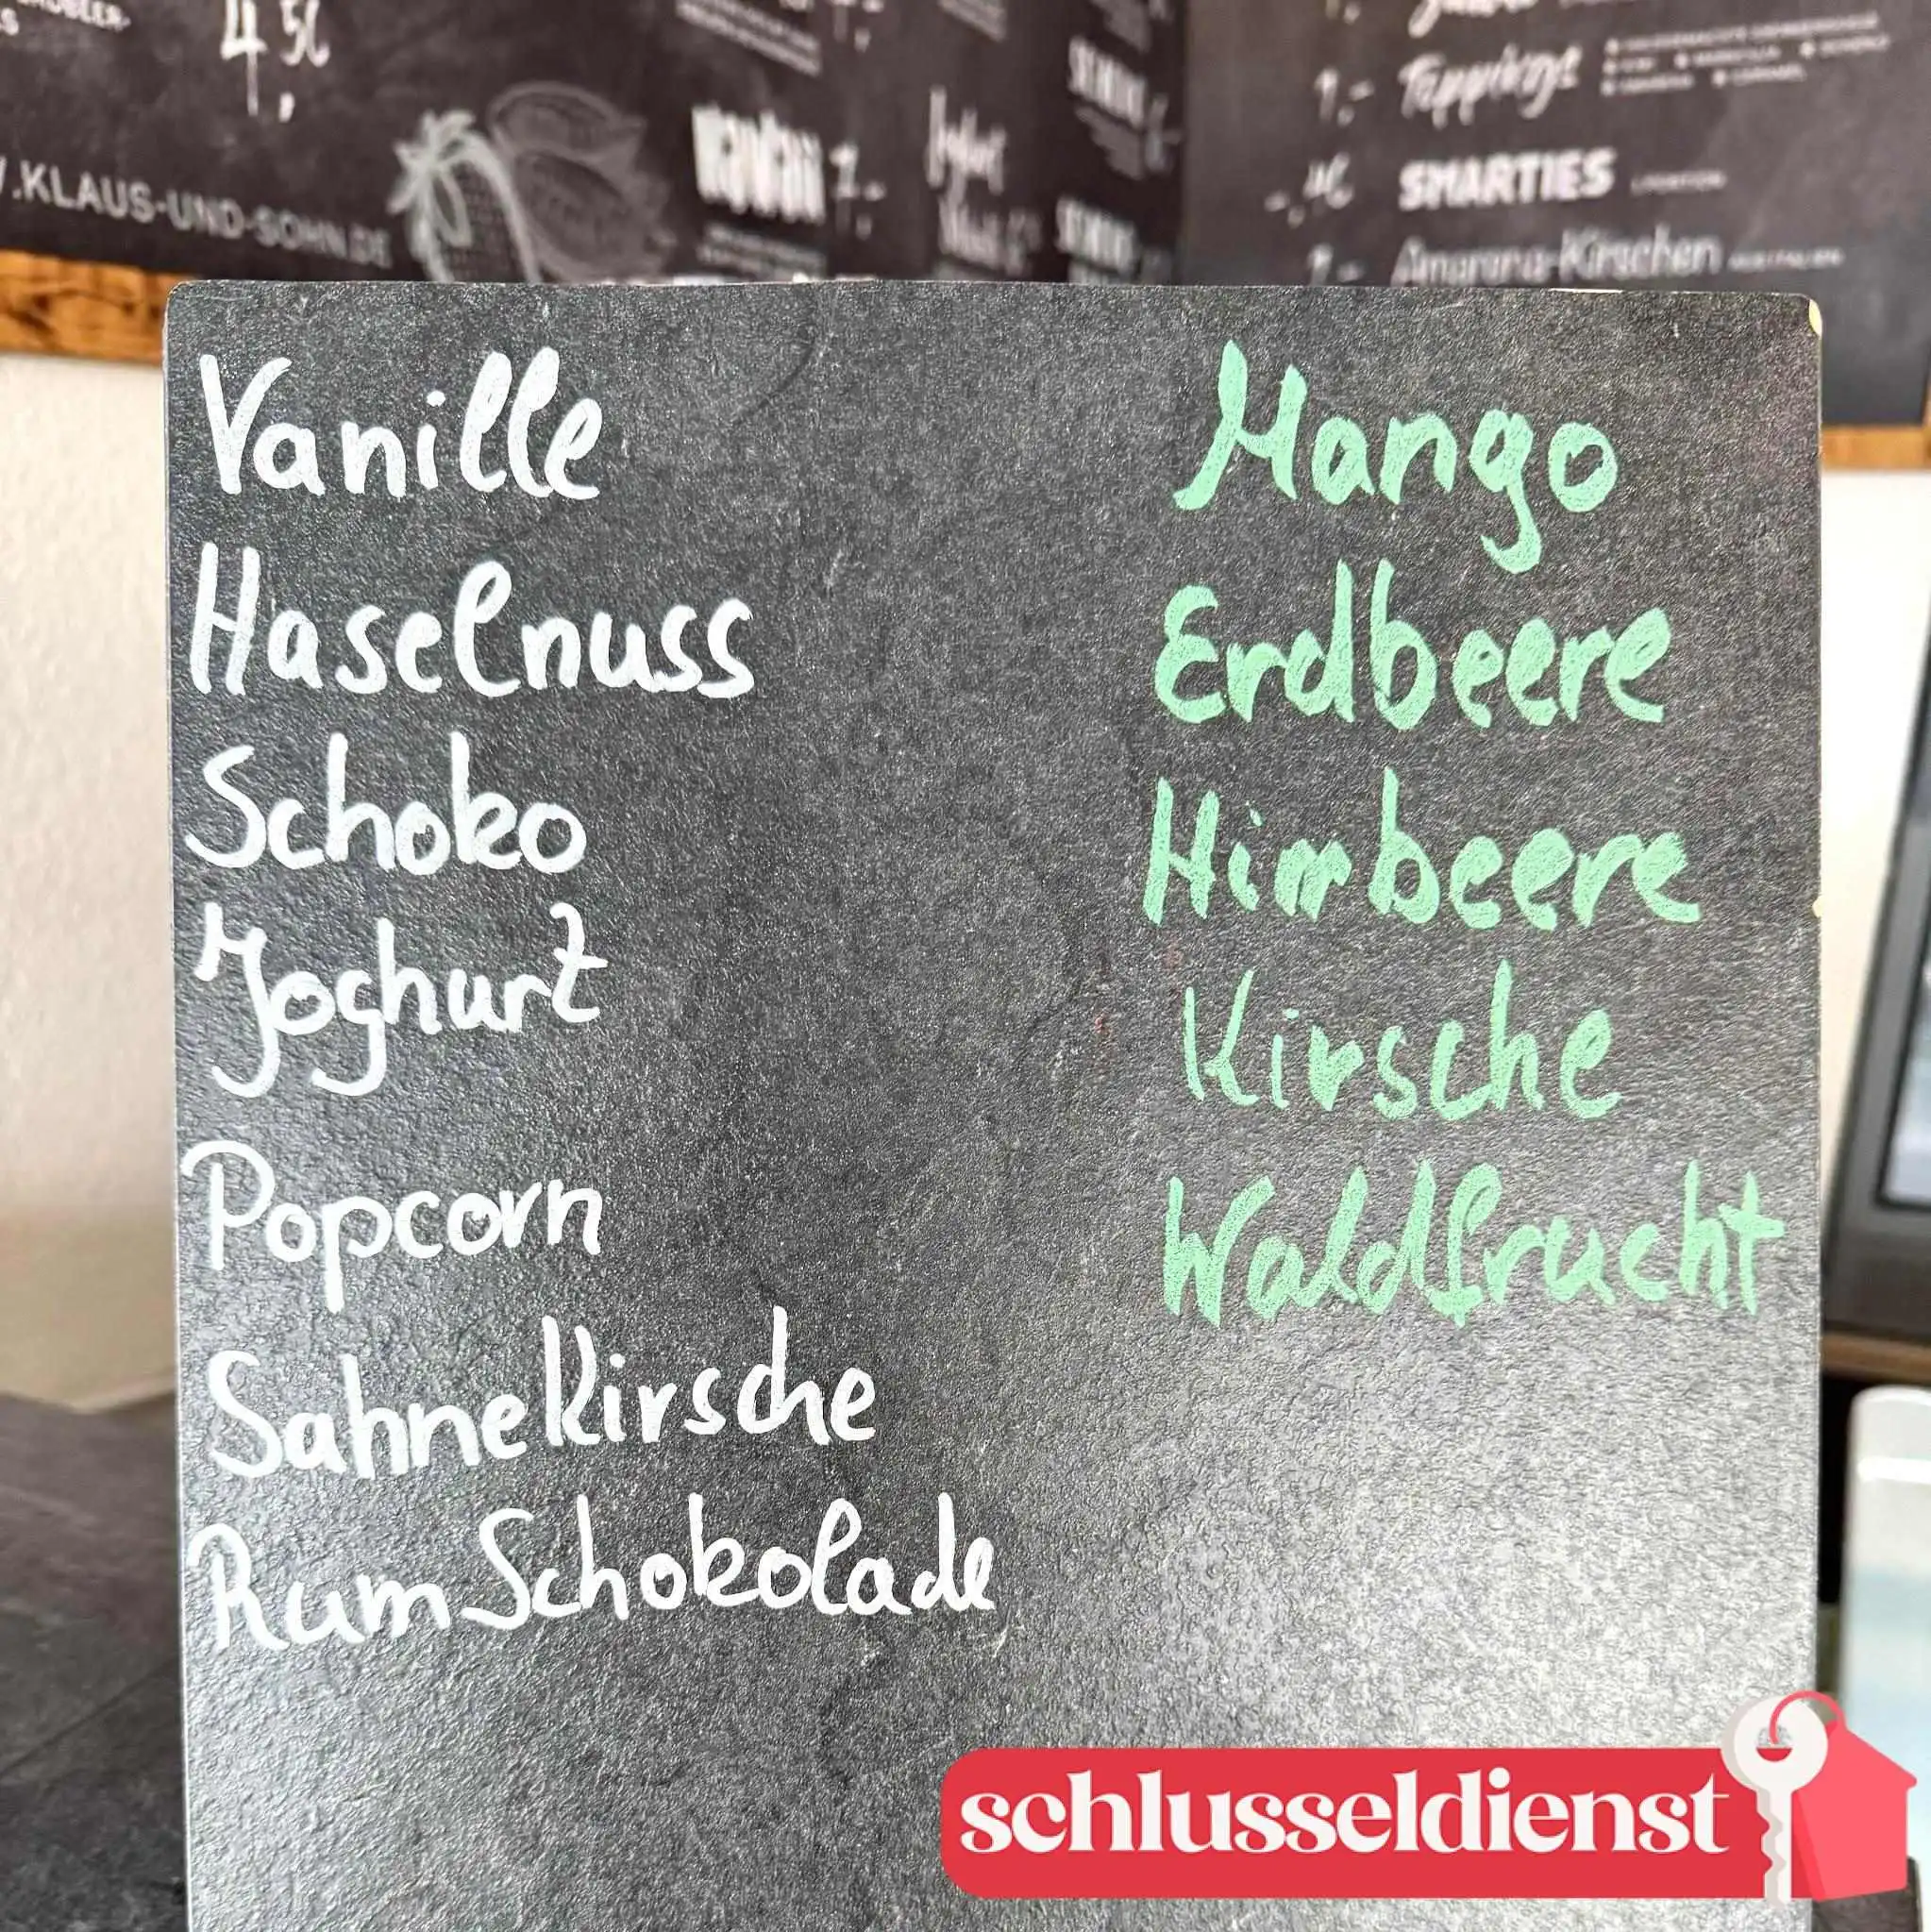 4,50
.KLAUS-UND-SOHN.DE
1,-
Toppings
SMARTIES
Amarena-Kirschen
Vanille
Haselnuss
Schoko
Joghurt
Popcorn
Sahnekirsche
Rum Schokolade
Mango
Erdbeere
Himbeere
Kirsche
Waldfrucht
schlusseldienst